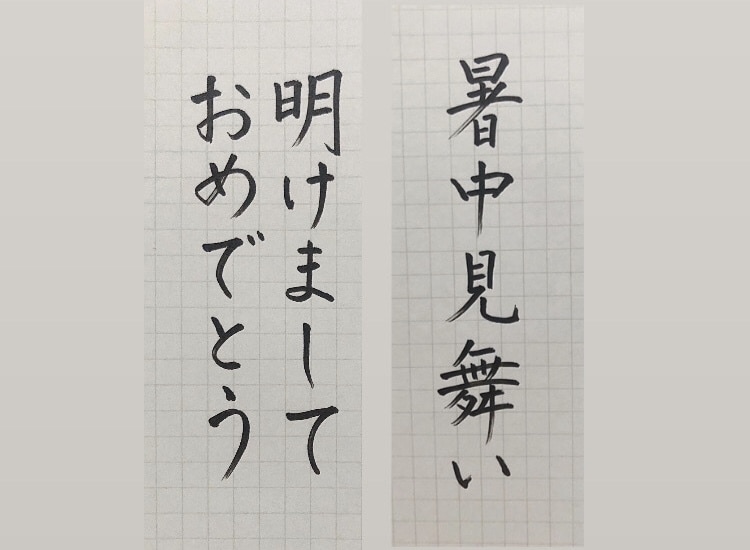 明けまして
おめでとう
暑中見舞い